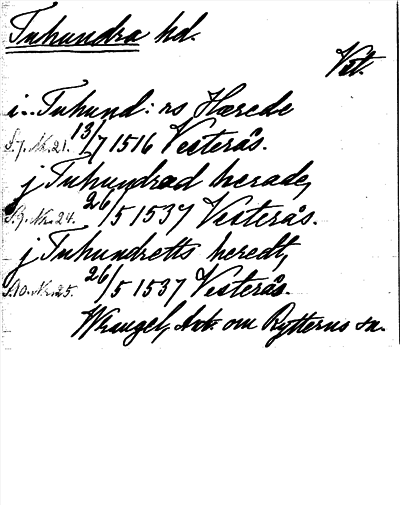 Tuhundra hd.
Vst.
i .. Tuhund: rs Hærede
S.7. Nr. 21. 13/7 1516 Vesterås.
j Tuhundrad herade,
S.9. Nr. 24. 26/5 1537 Vesterås.
j Tuhundretts heredt,
S.10. Nr. 25. 26/5 1537 Vesterås.
Wrangel, Ant. om Rytterns sn.